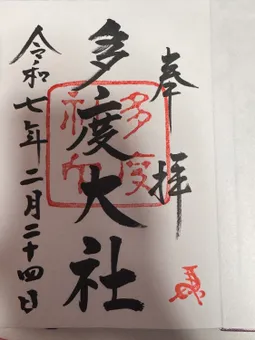 奉拝
多度大社
多度
社印
令和七年二月二十四日